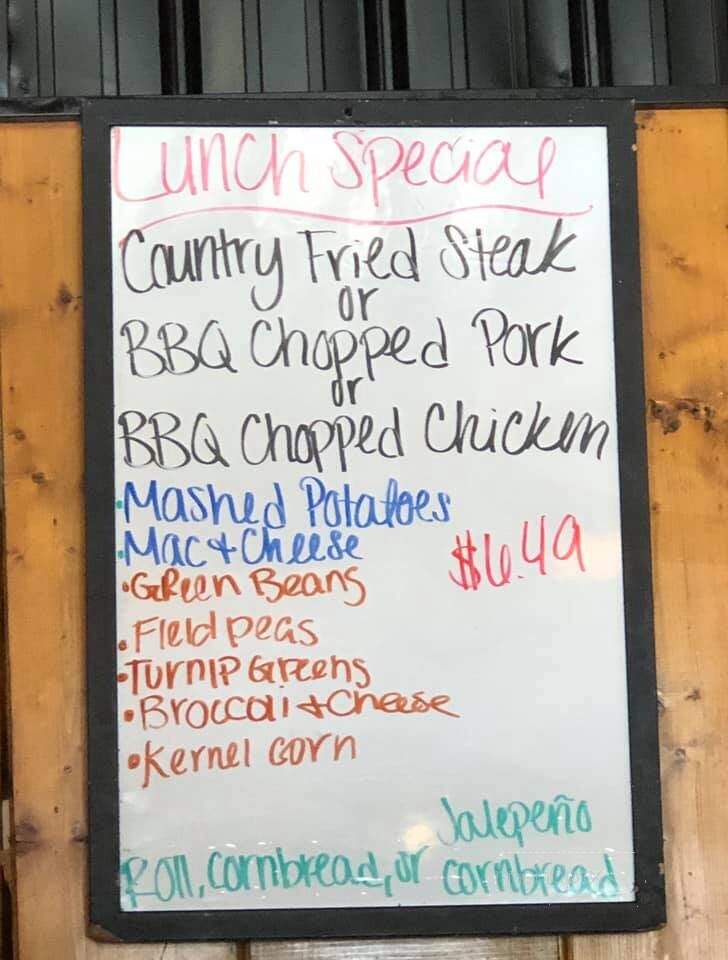 Lunch Special
Country Fried Steak
or
BBQ Chopped Pork
or
BBQ Chopped Chicken
·Mashed Potatoes
·Mac + Cheese
$6.49
·Green Beans
·Field peas
·Turnip Greens
·Broccoli + Cheese
·Kernel corn
Jalepeño
Roll, cornbread, or cornbread